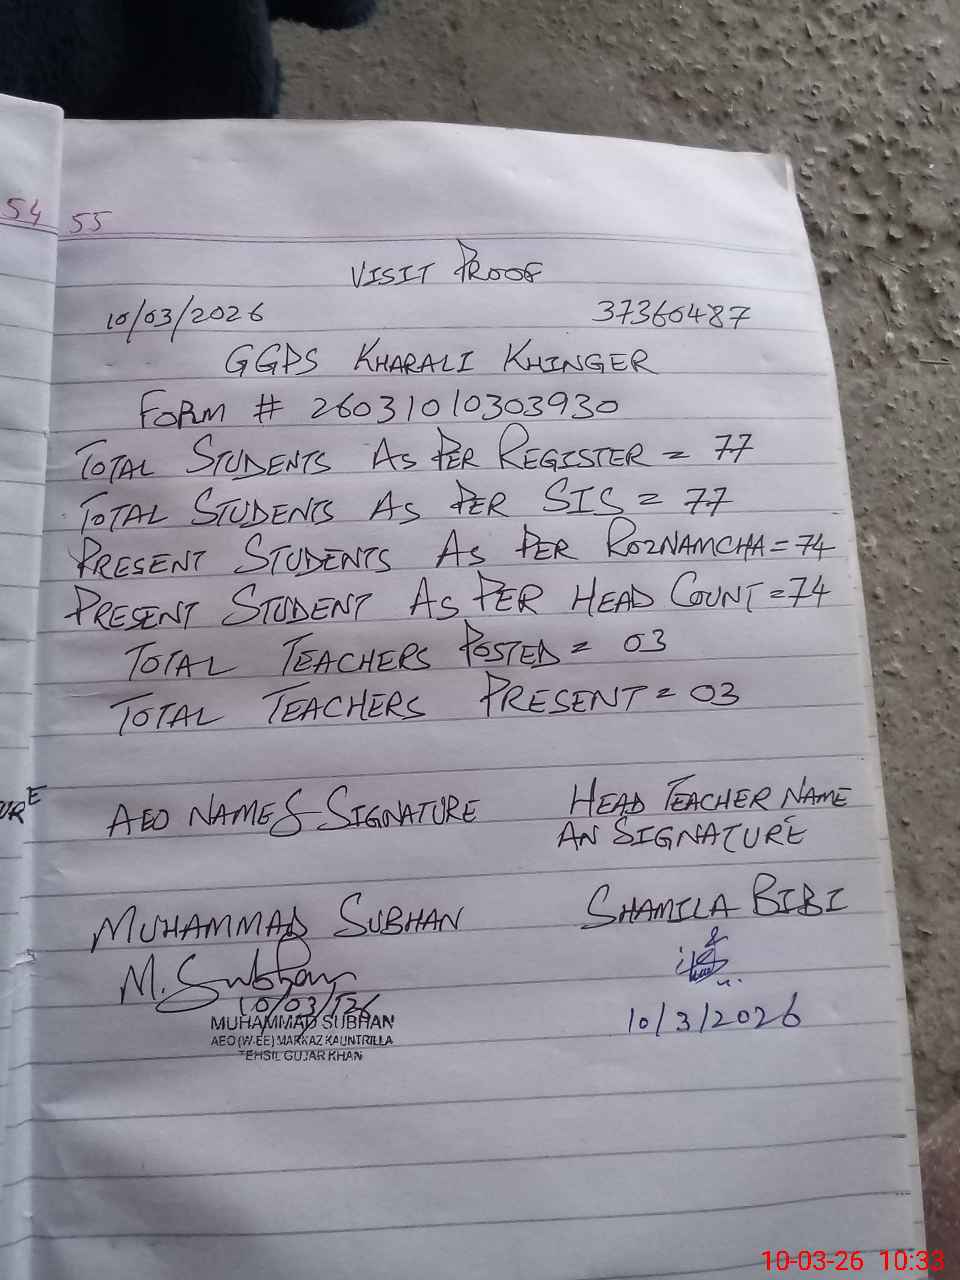 54 55
VISIT PROOF
10/03/2026 37360487
GGPS KHARALI KHINGER
FORM # 26031010303930
TOTAL STUDENTS AS PER REGISTER = 77
TOTAL STUDENTS AS PER SIS = 77
PRESENT STUDENTS AS PER ROZNAMCHA = 74
PRESENT STUDENT AS PER HEAD COUNT = 74
TOTAL TEACHERS POSTED = 03
TOTAL TEACHERS PRESENT = 03
URE
AEO NAME & SIGNATURE
HEAD TEACHER NAME
AN SIGNATURE
MUHAMMAD SUBHAN
SHAMILA BIBI
M. Subhan
10/03/26
10/3/2026
MUHAMMAD SUBHAN
AEO (W-EE) MARKAZ KAUNTRILLA
TEHSIL GUJAR KHAN
10-03-26 10:33